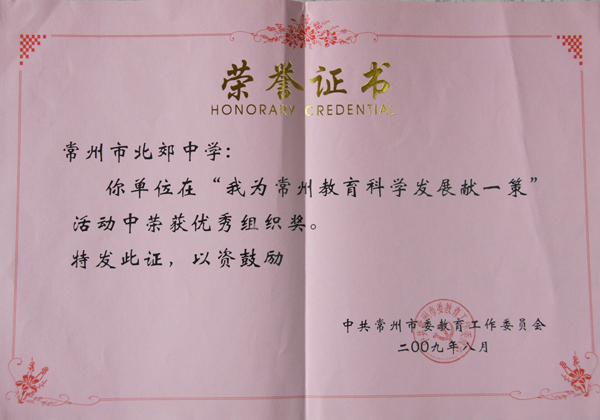 荣誉证书
HONORARY CREDENTIAL
常州市北郊中学：
你单位在“我为常州教育科学发展献一策”
活动中荣获优秀组织奖。
特发此证，以资鼓励
中共常州市委教育工作委员会
二00九年八月